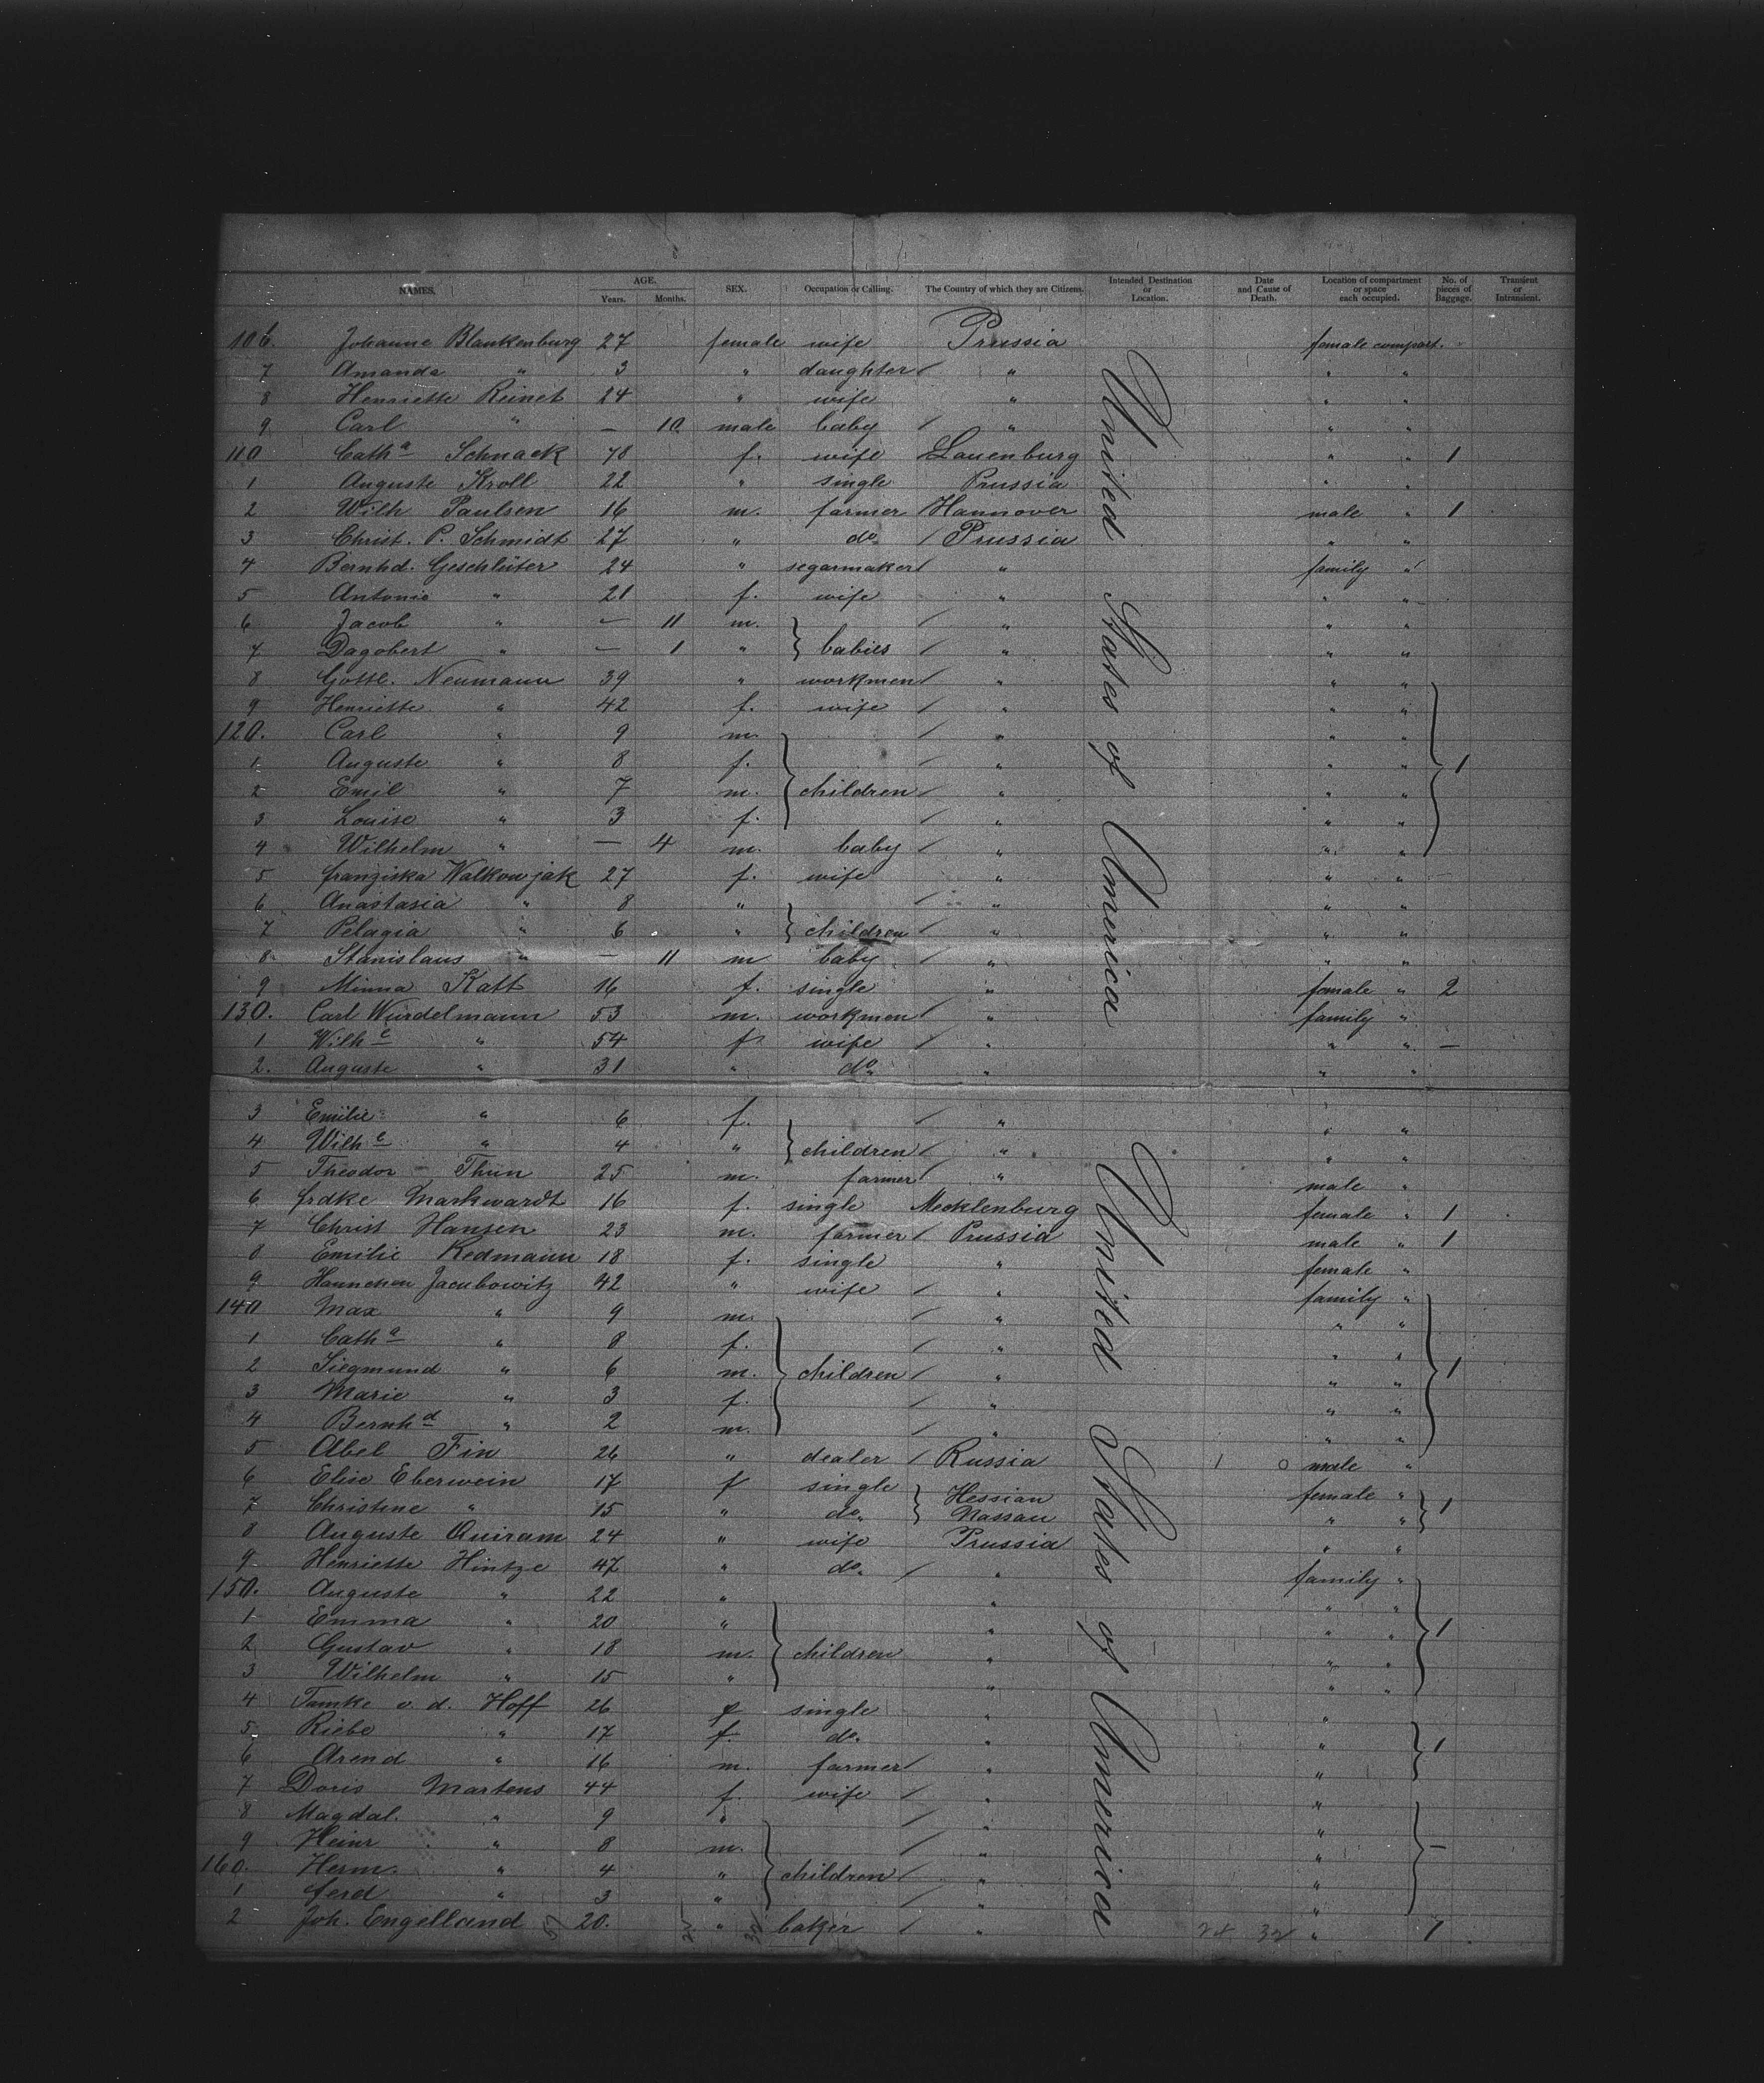 NAMES. AGE. Years. Months. SEX. Occupation or Calling. The Country of which they are Citizens. Intended Destination or Location. Date and Cause of Death. Location of compartment or space each occupied. No. of pieces of Baggage. Transient or Intransient.
106. Johanne Blankenburg 27 female wife Prussia female compart.
7 Amanda " 3 " daughter / " " "
8 Henriette Reinet 24 " wife " " "
9 Carl " — 10. male baby / " " "
110 Cath<sup>a</sup> Schnack 78 f. wife Lauenburg " " 1
1 Auguste Kroll 22 " single Prussia " "
2 Wilh Paulsen 16 m. farmer Hannover male " 1
3 Christ. P. Schmidt 27 " do / Prussia " "
4 Bernhd. Geschlüter 24 " segarmaker / " family "
5 Antonie " 21 f. wife " " "
6 Jacob " — 11 m. / " " "
7 Dagobert " — 1 " } babies / " " "
8 Gottl. Neumann 39 " workmen / " " "
9 Henriette " 42 f. wife / " " "
120. Carl " 9 m. / " " "
1 Auguste " 8 f. / " " " } 1
2 Emil " 7 m. } children / " " "
3 Louise " 3 f. / " " "
4 Wilhelm " — 4 m. baby / " " "
5 franziska Walkowjak 27 f. wife " " "
6 Anastasia " 8 " / " " "
7 Pelagia " 6 " } children " " "
8 Stanislaus " — 11 m baby / " " "
9 Minna Katt 16 f. single " female " 2
130. Carl Wurdelmann 53 m. workmen / " family "
1 Wilh<sup>e</sup> " 54 f. wife / " " " —
2. Auguste " 31 " do. " " "
3 Emilie " 6 f. / " " "
4 Wilh<sup>e</sup> " 4 " } children / " " "
5 Theodor Thun 25 m. farmer / " male "
6 frdke Markwardt 16 f. single Mecklenburg female " 1
7 Christ Hansen 23 m. farmer / Prussia male " 1
8 Emilie Redmann 18 f. single " female "
9 Hannchen Jacubowitz 42 " wife / " family "
140 Max " 9 m. / " " "
1 Cath<sup>a</sup> " 8 f. / " " "
2 Siegmund " 6 m. } children / " " " } 1
3 Marie " 3 f. / " " "
4 Bernh<sup>d</sup> " 2 m. / " " "
5 Abel Fin 26 " dealer / Russia 1 0 male "
6 Elise Eberwein 17 f single } Hessian female "
7 Christine " 15 " do. } Nassau " " } 1
8 Auguste Quiram 24 " wife Prussia " "
9 Henriette Hintze 47 " do. / " family "
150. Auguste " 22 " " " "
1 Emma " 20 " " " " } 1
2 Gustav " 18 m. } children " " "
3 Wilhelm " 15 " " " "
4 Tamke v. d. Hoff 26 f single " "
5 Riebe " 17 f. do. " " } 1
6 Arend " 16 m. farmer / " "
7 Doris Martens 44 f. wife / " "
8 Magdal. " 9 " / " "
9 Heinr " 8 m. / " " } —
160. Herm. " 4 " } children / " "
1 ferd " 3 " / " "
2 Joh. Engelland 20. " baker / " 24 32 " 1
United States of America
United States of America